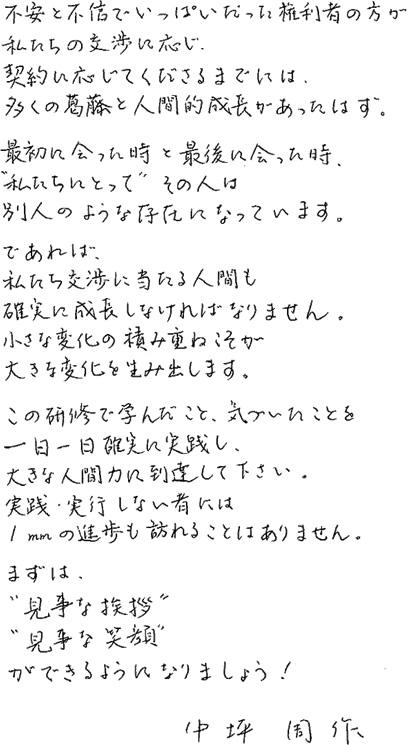 不安と不信でいっぱいだった権利者の方が
私たちの交渉に応じ、
契約に応じてくださるまでには、
多くの葛藤と人間的成長があったはず。
最初に会った時と最後に会った時、
"私たちにとって" その人は
別人のような存在になっています。
であれば、
私たち交渉に当たる人間も
確実に成長しなければなりません。
小さな変化の積み重ねこそが
大きな変化を生み出します。
この研修で学んだこと、気づいたことを
一日一日確実に実践し、
大きな人間力に到達して下さい。
実践・実行しない者には
1mmの進歩も訪れることはありません。
まずは、
"見事な挨拶"
"見事な笑顔"
ができるようになりましょう!
中坪 周作